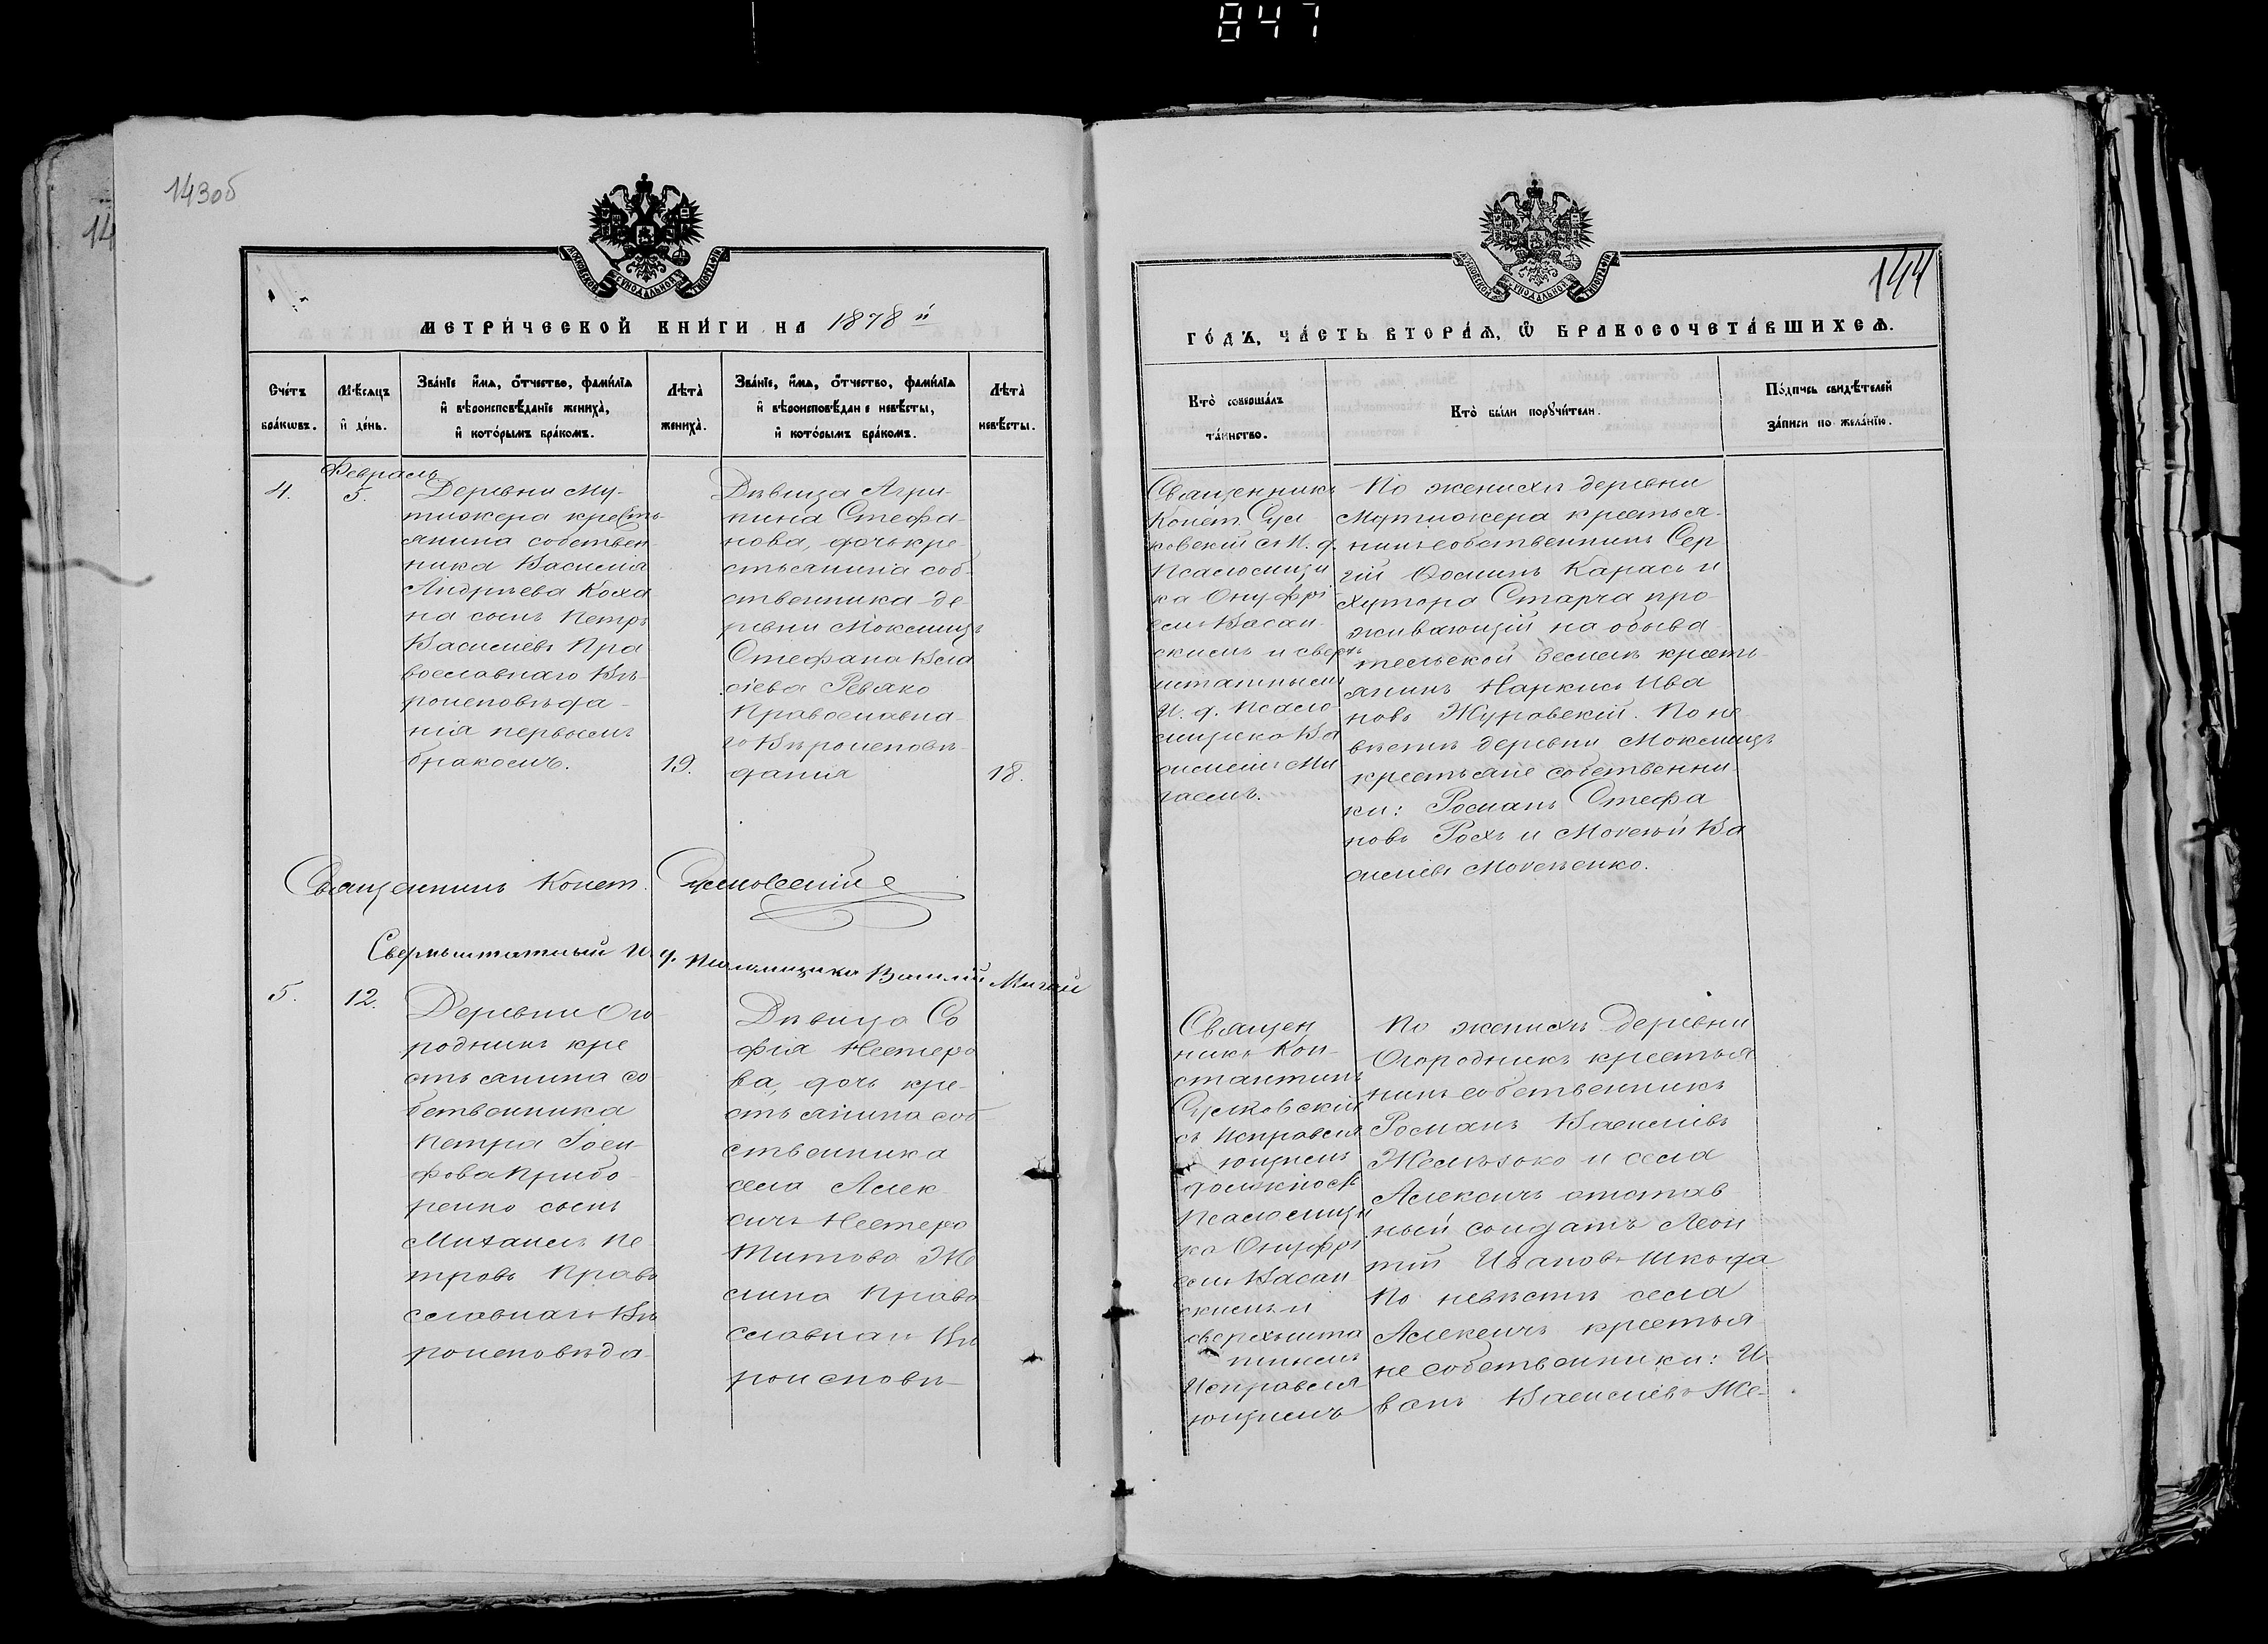 847
143об
14
МОСКОВСКОЙ СѴНОДАЛЬНОЙ ТИПОГРАФІИ
МЕТРИ́ЧЕСКОЙ КНИ́ГИ НА 1878й
Сче́тъ бра́кѡвъ.
Мѣ́сяцъ и҆ де́нь.
Зва́нїе и҆́мѧ, ѻ҆́тчество, фами́лїѧ
и҆ вѣроисповѣ́данїе жениха̀,
и҆ кото́рымъ бра́комъ.
Лѣта̀ жениха̀.
Зва́нїе, и҆́мѧ, ѻ҆́тчество, фами́лїѧ
и҆ вѣроисповѣ́данїе невѣ́сты,
и҆ кото́рымъ бра́комъ.
Лѣта̀ невѣ́сты.
4.
Февраль
5.
Деревни Му-
тижера кресть-
янина собствен
ника Василія
Андреева Коха
на сынъ Петръ
Василіевъ Пра
вославнаго Вѣ-
роисповѣда-
нія первымъ
бракомъ.
19.
Дѣвица Агри-
пина Стефа-
нова, дочь кре-
стьянина соб-
ственника де-
ревни Мокишицъ
Стефана Вла
сіева Ревако
Православна-
го Вѣроисповѣ-
данія
18.
Священникъ Конст. Сулковскій
Сверхштатный И. д. Псаломщика Василій Мигай
5.
12.
Деревни Ого
родникъ кре
стьянина со
бственника
Петра Іоси-
фова Придо-
ренко сынъ
Михаилъ Пе-
тровъ Право
славнаго Вѣ
роисповѣда-
Дѣвица Со
фія Нестеро
ва, дочь кре-
стьянина соб
ственника
села Алек
сичъ Нестера
Титова Же
лина Право
славнаго Вѣ
роисповѣ-
144
МОСКОВСКОЙ СѴНОДАЛЬНОЙ ТИПОГРАФІИ
ГО́ДЪ, ЧА́СТЬ ВТОРА́Ѧ, Ѡ҆ БРАКОСОЧЕТА́ВШИХСѦ.
Кто̀ соверша́лъ
та́инство.
Кто̀ бы́ли порꙋчи́тели.
По́дпись свидѣ́телей
за́писи по жела́нїю.
Священникъ
Конст. Сул
ковскій съ И. д.
Псаломщи
ка Онуфрі
емъ Касан
скимъ и сверхъ
штатнымъ
И. д. Псало-
мщика Ва
силіемъ Ми
гаемъ.
По женихѣ деревни
Мутижера крестья-
нинъ собственникъ Сер
гій Фоминъ Карась и
хутора Старча про
живающій на обыва
тельской землѣ кресть-
янинъ Наркисъ Ива
новъ Журавскій. По не
вѣстѣ деревни Мокишицъ
крестьяне собственни-
ки: Романъ Стефа
новъ Рохъ и Моисей Ва
силіевъ Моисеенко.
Священ
никъ Кон-
стантинъ
Сулковскій
съ Исправля
ющимъ
должность
Псаломщи
ка Онуфрі
емъ Касан
скимъ и
сверхшта
тнымъ
Исправля
ющимъ
По женихѣ Деревни
Огородникъ крестья
нинъ собственникъ
Романъ Василіевъ
Желѣзко и села
Алексичъ отстав
ный солдатъ Леон
тій Ивановъ Шкода
По невѣстѣ села
Алексичъ крестья
не собственники: И-
ванъ Василіевъ Же-